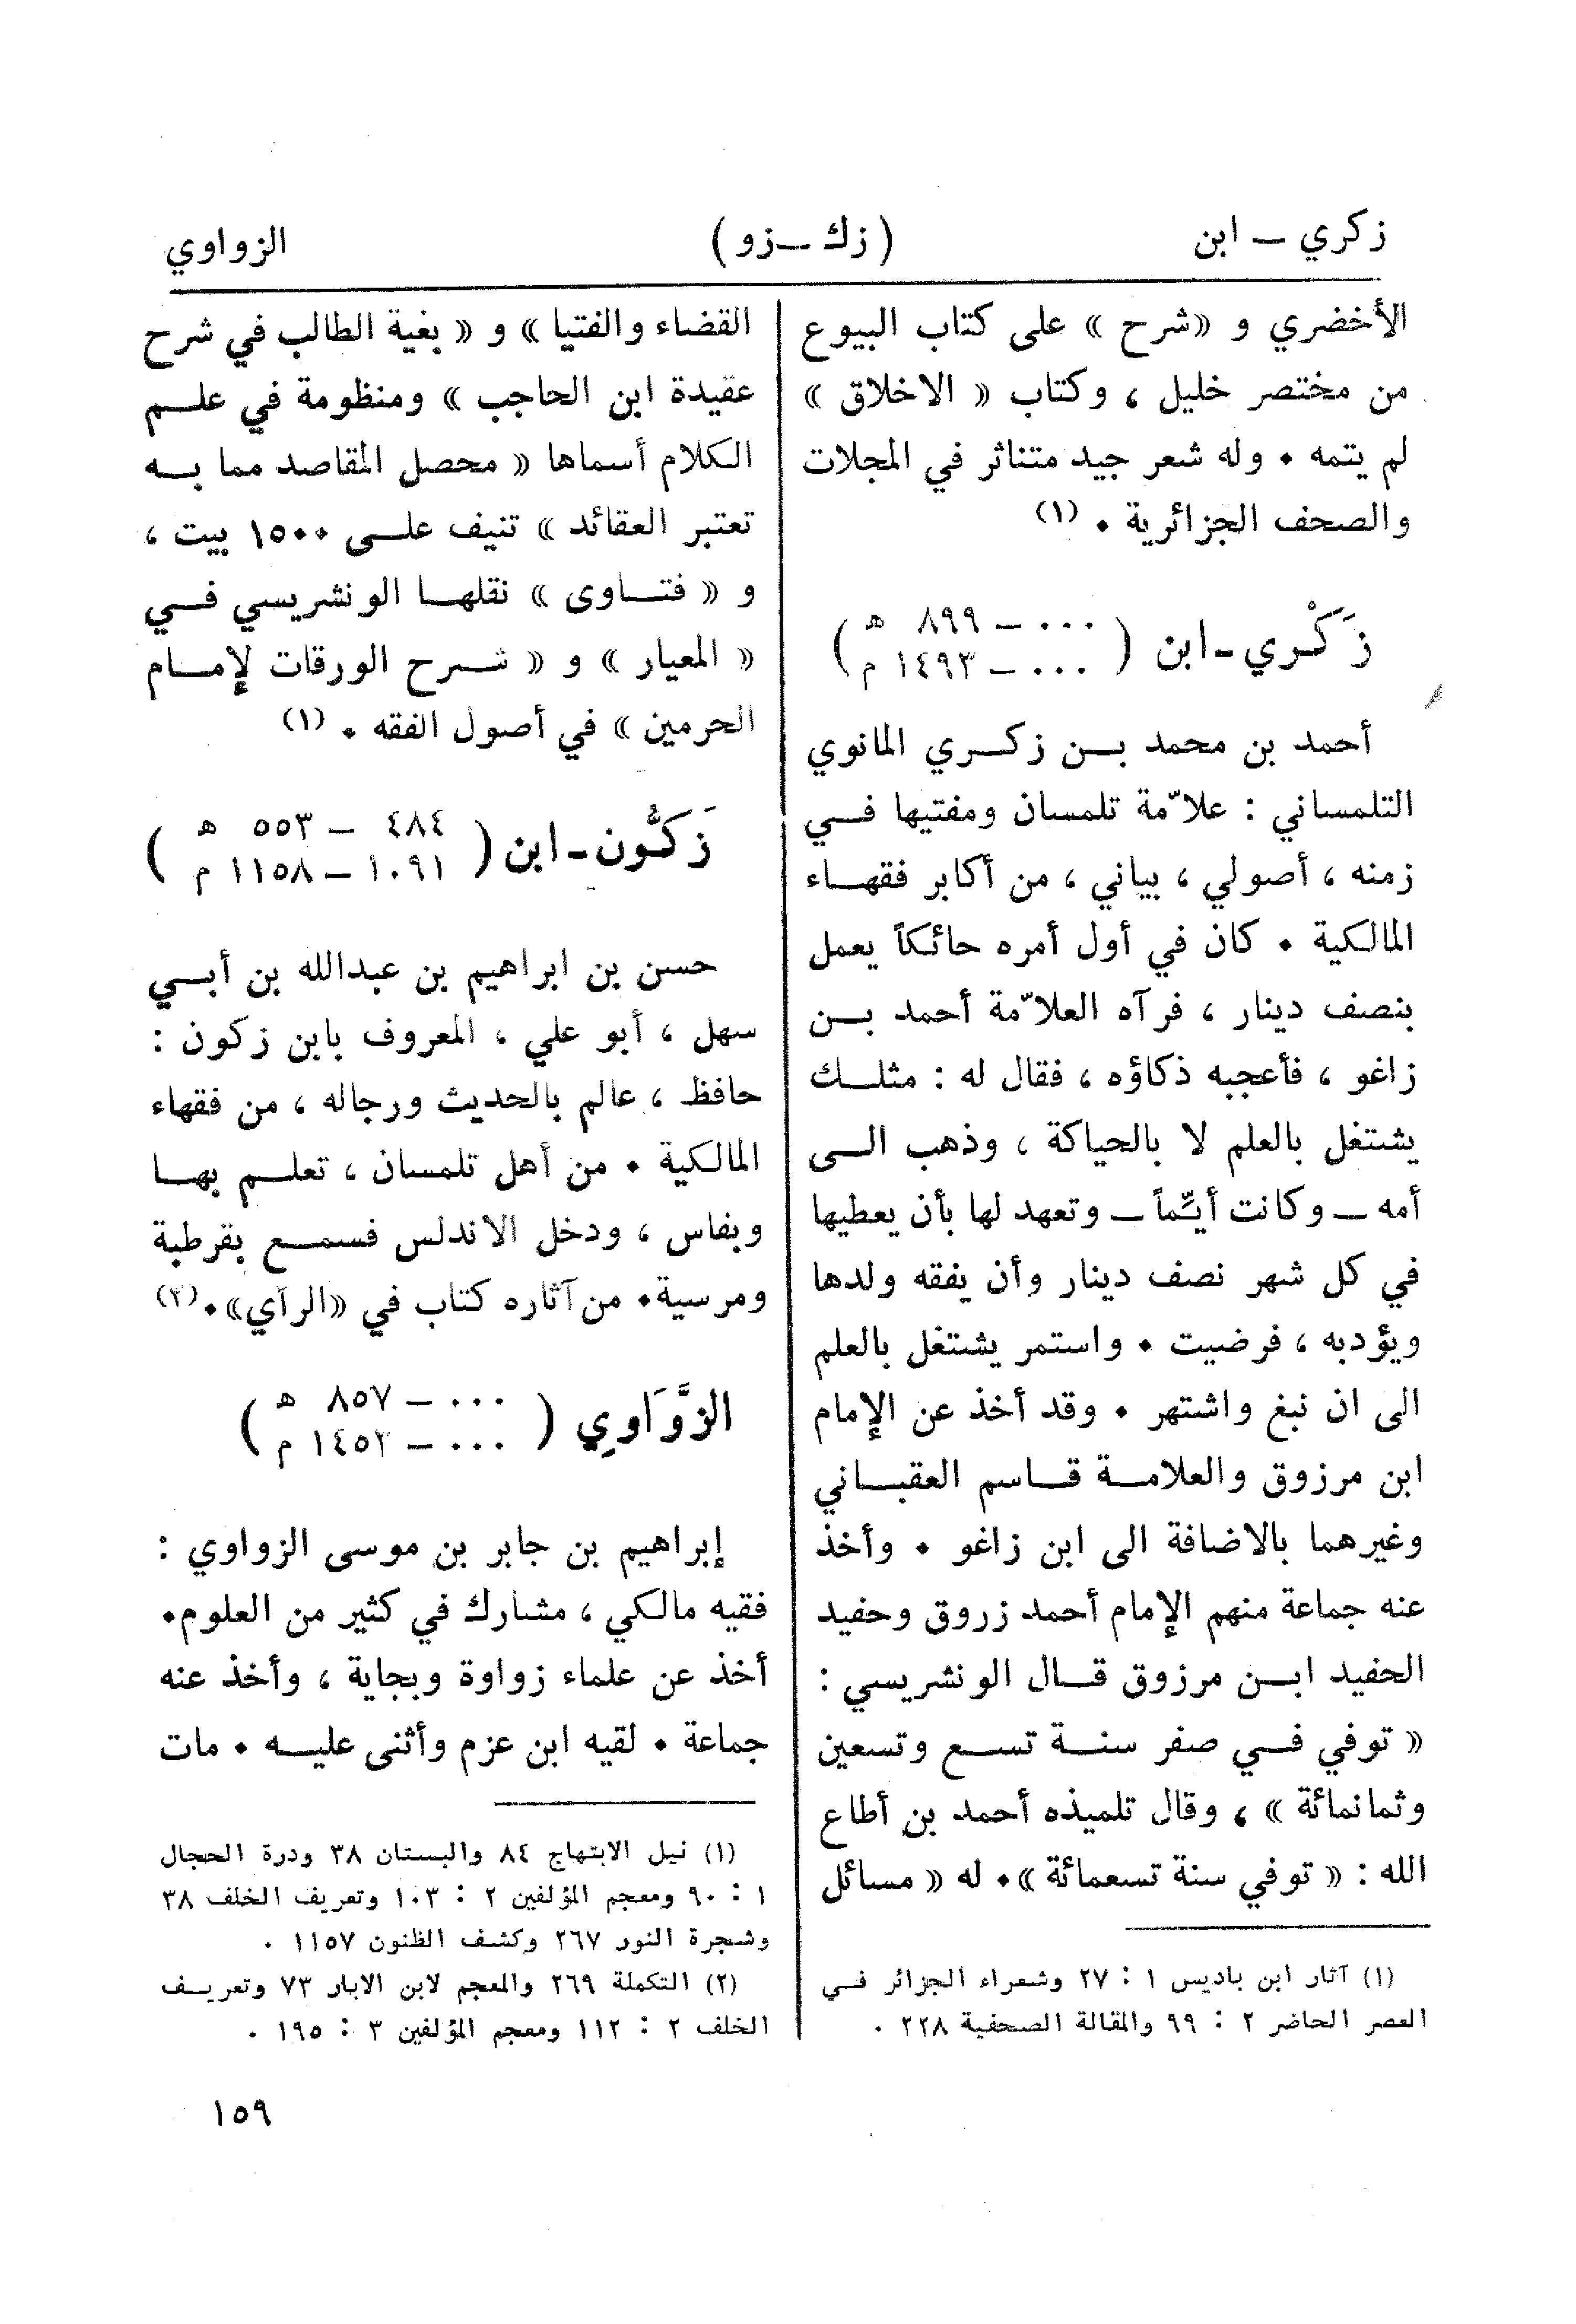 زكري – ابن
( زك – زو )
الزواوي
الأخضري و «شرح » على كتاب البيوع
من مختصر خليل ، وكتاب « الاخلاق »
لم يتمه . وله شعر جيد متناثر في المجلات
والصحف الجزائرية . (١)
زَكْري - ابن ( ٠٠٠ – ٨٩٩ هـ
٠٠٠ – ١٤٩٣ م )
أحمد بن محمد بن زكري المانوي
التلمساني : علاّمة تلمسان ومفتيها في
زمنه ، أصولي ، بياني ، من أكابر فقهاء
المالكية . كان في أول أمره حائكاً يعمل
بنصف دينار ، فرآه العلاّمة أحمد بن
زاغو ، فأعجبه ذكاؤه ، فقال له : مثلك
يشتغل بالعلم لا بالحياكة ، وذهب الى
أمه – وكانت أيّماً – وتعهد لها بأن يعطيها
في كل شهر نصف دينار وأن يفقه ولدها
ويؤدبه ، فرضيت . واستمر يشتغل بالعلم
الى ان نبغ واشتهر . وقد أخذ عن الإمام
ابن مرزوق والعلامة قاسم العقباني
وغيرهما بالاضافة الى ابن زاغو . وأخذ
عنه جماعة منهم الإمام أحمد زروق وحفيد
الحفيد ابن مرزوق قال الونشريسي :
« توفي في صفر سنة تسع وتسعين
وثمانمائة » ، وقال تلميذه أحمد بن أطاع
الله : « توفي سنة تسعمائة ». له « مسائل
(١) آثار ابن باديس ١ : ٢٧ وشعراء الجزائر في
العصر الحاضر ٢ : ٩٩ والمقالة الصحفية ٢٢٨ .
القضاء والفتيا » و « بغية الطالب في شرح
عقيدة ابن الحاجب » ومنظومة في علم
الكلام أسماها « محصل المقاصد مما به
تعتبر العقائد » تنيف على ١٥٠٠ بيت ،
و « فتاوى » نقلها الونشريسي في
« المعيار » و « شرح الورقات لإمام
الحرمين » في أصول الفقه . (١)
زَكُّون - ابن ( ٤٨٤ – ٥٥٣ هـ
١٠٩١ – ١١٥٨ م )
حسن بن ابراهيم بن عبدالله بن أبي
سهل ، أبو علي ، المعروف بابن زكون :
حافظ ، عالم بالحديث ورجاله ، من فقهاء
المالكية . من أهل تلمسان ، تعلم بها
وبفاس ، ودخل الاندلس فسمع بقرطبة
ومرسية. من آثاره كتاب في «الرآي». (٢)
الزَّوَاوِي ( ٠٠٠ – ٨٥٧ هـ
٠٠٠ – ١٤٥٣ م )
إبراهيم بن جابر بن موسى الزواوي :
فقيه مالكي ، مشارك في كثير من العلوم.
أخذ عن علماء زواوة وبجاية ، وأخذ عنه
جماعة . لقيه ابن عزم وأثنى عليه . مات
(١) نيل الابتهاج ٨٤ والبستان ٣٨ ودرة الحجال
١ : ٩٠ ومعجم المؤلفين ٢ : ١٠٣ وتعريف الخلف ٣٨
وشجرة النور ٢٦٧ وكشف الظنون ١١٥٧ .
(٢) التكملة ٢٦٩ والمعجم لابن الابار ٧٣ وتعريف
الخلف ٢ : ١١٢ ومعجم المؤلفين ٣ : ١٩٥ .
١٥٩